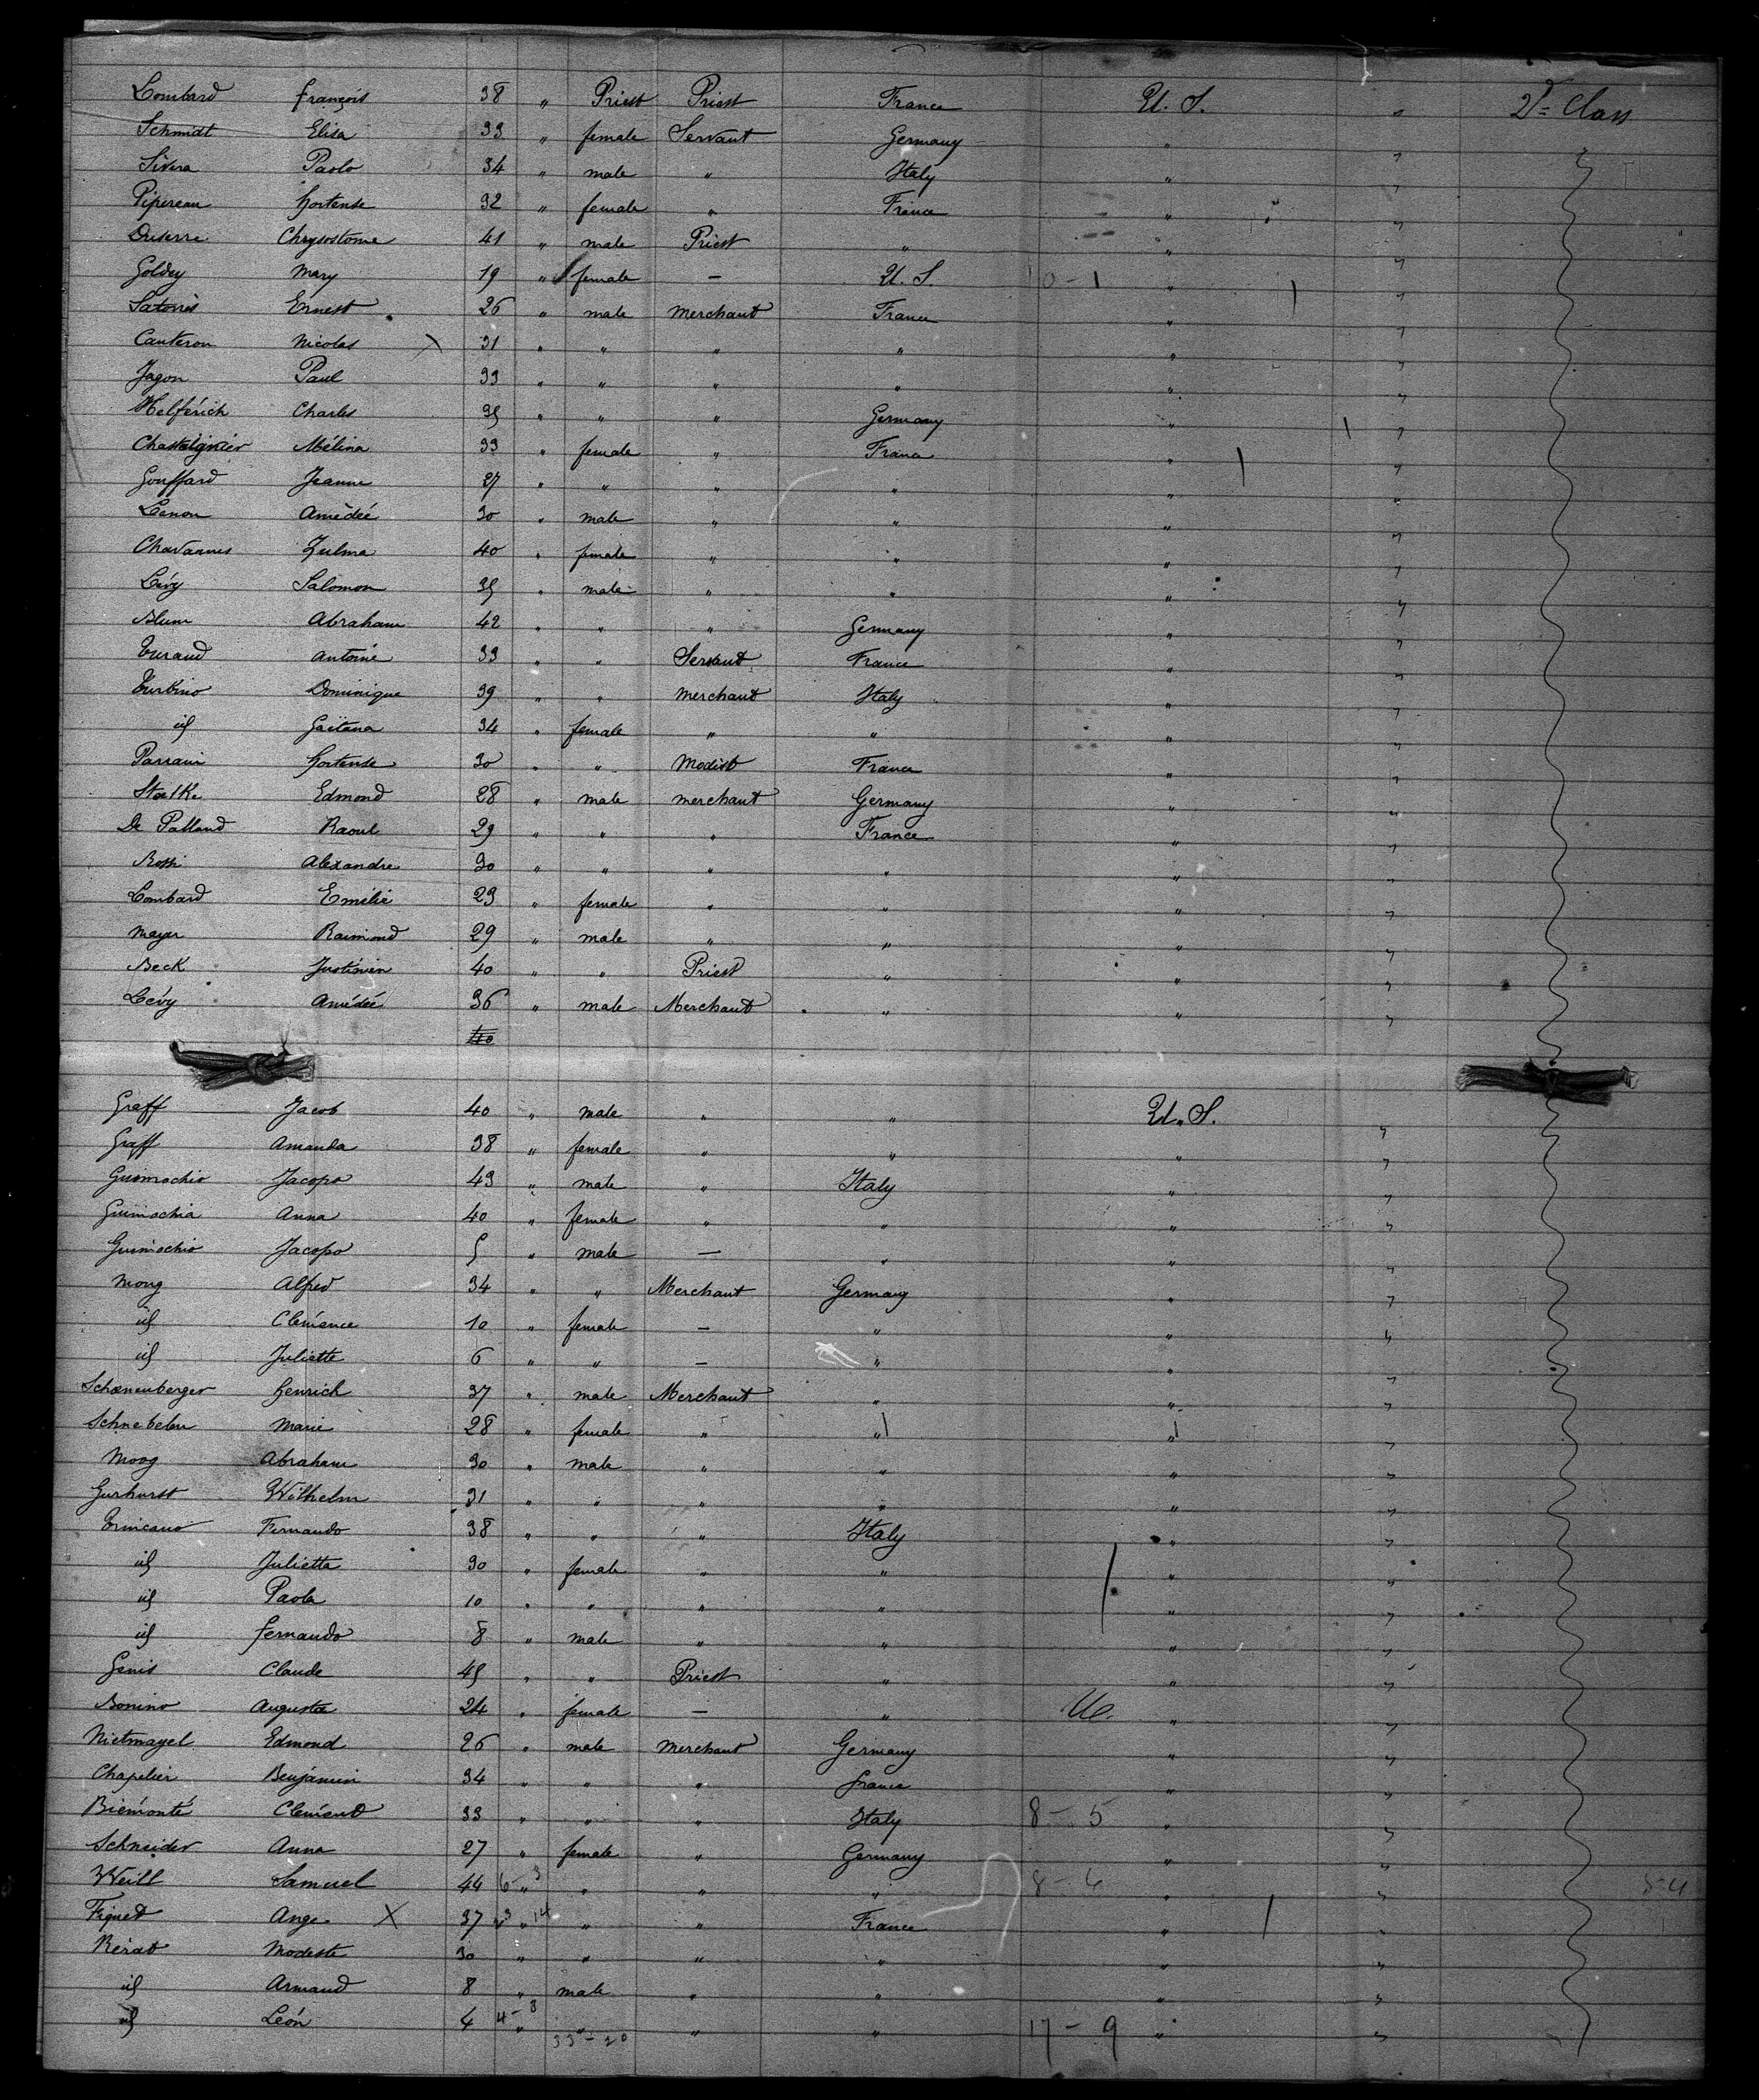 Lombard François 38 " Priest Priest France U. S. " 2d= Class
Schmidt Elisa 33 " female Servant Germany " "
Sivera Paolo 34 " male " Italy " "
Pipereau hortense 32 " female " France " "
Duserre Chrysostome 41 " male Priest " " "
Goldey Mary 19 " female — U. S. 0 - 1 " "
Satorris Ernest 26 " male Merchant France " "
Canteron Nicolas X 31 " " " " " "
Jagon Paul 33 " " " " " "
Helférich Charles 35 " " " Germany " "
Chastaignier Mélina 33 " female " France " "
Gouffard Jeanne 27 " " " " " "
Lenon Amédéé 30 " male " " " "
Chavannes Zulma 40 " female " " " "
Lévy Salomon 35 " male " " " "
Blum Abraham 42 " " " Germany " "
Turaud Antoine 33 " " Servant France " "
Turbino Dominique 39 " " Merchant Italy " "
id Gaëtana 34 " female " " " "
Parrain hortense 30 " " Modist France " "
Stalke Edmond 28 " male merchant Germany " "
De Palland Raoul 29 " " " France " "
Rossi Alexandre 30 " " " " " "
Lombard Emélie 23 " female " " " "
Mayer Raimond 29 " male " " " "
Beck Justinien 40 " " Priest " " "
Lévy Amédéé 36 " male Merchant " " "
40
Graff Jacob 40 " male " " U. S. "
Graff Amanda 38 " female " " " "
Guimochio Jacopo 43 " male " Italy " "
Guimochia Anna 40 " female " " " "
Guimochio Jacopo 5 " male — " " "
Moog Alfred 34 " " Merchant Germany " "
id Clémence 10 " female — " " "
id Juliette 6 " " — " " "
Schoenenberger henrich 37 " male Merchant " " "
Schnebelen Marie 28 " female " " " "
Moog Abraham 30 " male " " " "
Gerhurst Wilhelm 31 " " " " " "
Trincano Fernando 38 " " " Italy " "
id Julietta 30 " female " " " "
id Paola 10 " " " " " "
id fernando 8 " male " " " "
Genis Claude 45 " " Priest " " "
Bonino Augusta 24 " female — " " "
Nietmayel Edmond 26 " male Merchant Germany " "
Chapelier Benjamin 34 " " " france " "
Biémonté Clément 33 " " " Italy 8 - 5 " "
Schneider Anna 27 " female " Germany " "
Weill Samuel 44 6 - 3 " " " " 8 - 6 " " 5-4
Fiquet Ange X 37 " 14 " " France " "
Rérat Modeste 30 " " " " " "
id Armand 8 " male " " " "
id Léon 4 4 - 8 " " " " 17 - 9 " "
33 - 20